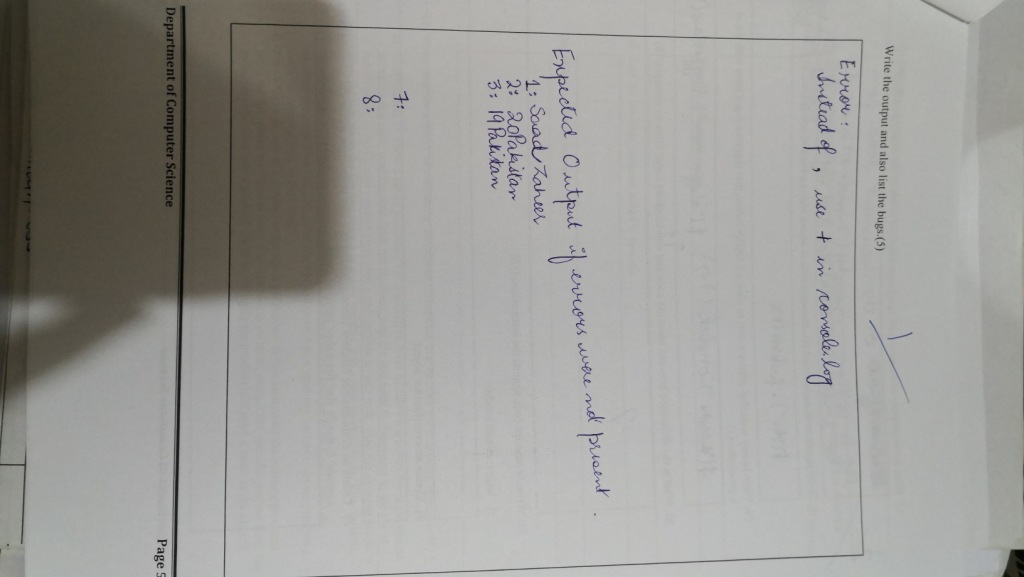 1
Write the output and also list the bugs.(5)
Error :
Instead of , use + in console.log
Expected Output if errors were not present .
1: Saad Zaheer
2: 20Pakistan
3: 19Pakitan
7:
8:
Department of Computer Science
Page 5